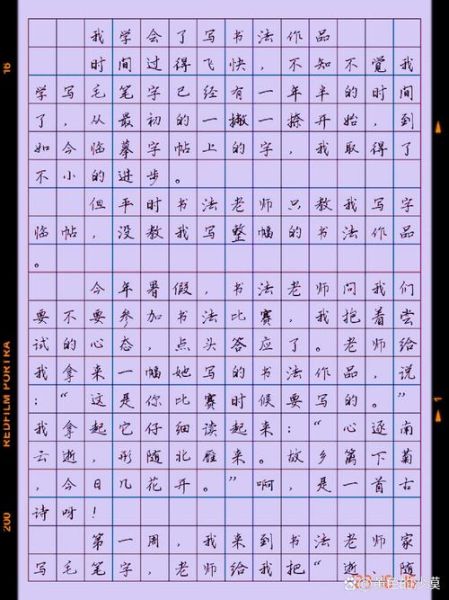 我学会了写书法作品
时间过得飞快，不知不觉我
学写毛笔字已经有一年半的时间
了，从最初的一撇一捺开始，到
如今临摹字帖上的字，我取得了
不小的进步。
但平时书法老师只教我写字
临帖，没教我写整幅的书法作品
。
今年暑假，书法老师问我们
要不要参加书法比赛，我抱着尝
试的心态，点头答应了。老师给
我拿来一幅她写的书法作品，说
：“这是你比赛时候要写的。”
我拿起它仔细读起来：“心逐南
云逝，形随北雁来。故乡篱下菊
，今日几花开。”啊，是一首古
诗呀！
第一周，我来到书法老师家
写毛笔字，老师给我把“逝、随
REDFILM PORTRA
200
16
1